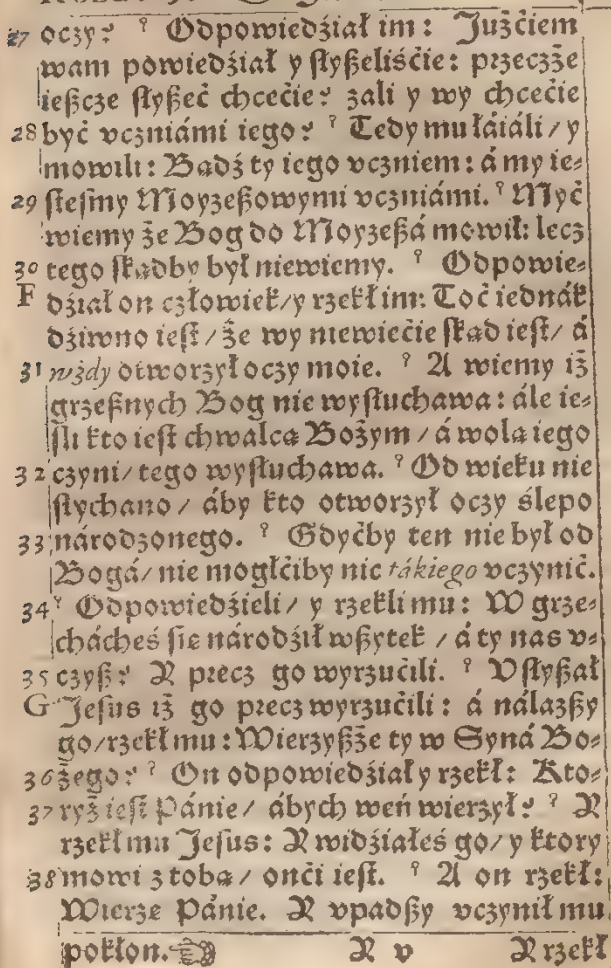 27 oczy? ⁹ Odpowiedźiał im: Jużćiem
wam powiedźiał y słyßeliśćie: przeczże
ießcze słyßeć chcećie? zali y wy chcećie
28 być vczniámi iego? ⁹ Tedy mu łáiáli / y
mowili: Bądź ty iego vczniem: á my ie⸗
29 stesmy Moyzeßowymi vczniámi. ⁹ Myć
wiemy że Bog do Moyzeßá mowił: lecz
30 tego skądby był niewiemy. ⁹ Odpowie⸗
F dźiał on człowiek / y rzekł im: Toć iednák
dźiwno iest / że wy niewiećie skąd iest / á
31 wżdy otworzył oczy moie. ⁹ A wiemy iż
grzeßnych Bog nie wysłuchawa: ále ie⸗
śli kto iest chwalcą Bożym / á wolą iego
32 czyni / tego wysłuchawa. ⁹ Od wieku nie
słychano / áby kto otworzył oczy ślepo
33 národzonego. ⁹ Gdyćby ten nie był od
Bogá / nie mogłćiby nic tákiego vczynić.
34 ⁹ Odpowiedźieli / y rzekli mu: W grze⸗
chácheś sie národźił wßytek / á ty nas v⸗
35 czyß? Y precz go wyrzućili. ⁹ Vsłyßał
G Jesus iż go precz wyrzućili: á nálazßy
go / rzekł mu: Wierzyßże ty w Syná Bo⸗
36 żego? ⁹ On odpowiedźiał y rzekł: Kto⸗
37 ryż iest Pánie / ábych weń wierzył? ⁹ Y
rzekł mu Jesus: Y widźiałeś go / y ktory
38 mowi z tobą / onći iest. ⁹ A on rzekł:
Wierzę Pánie. Y vpadßy vczynił mu
pokłon. Y v Y rzekł